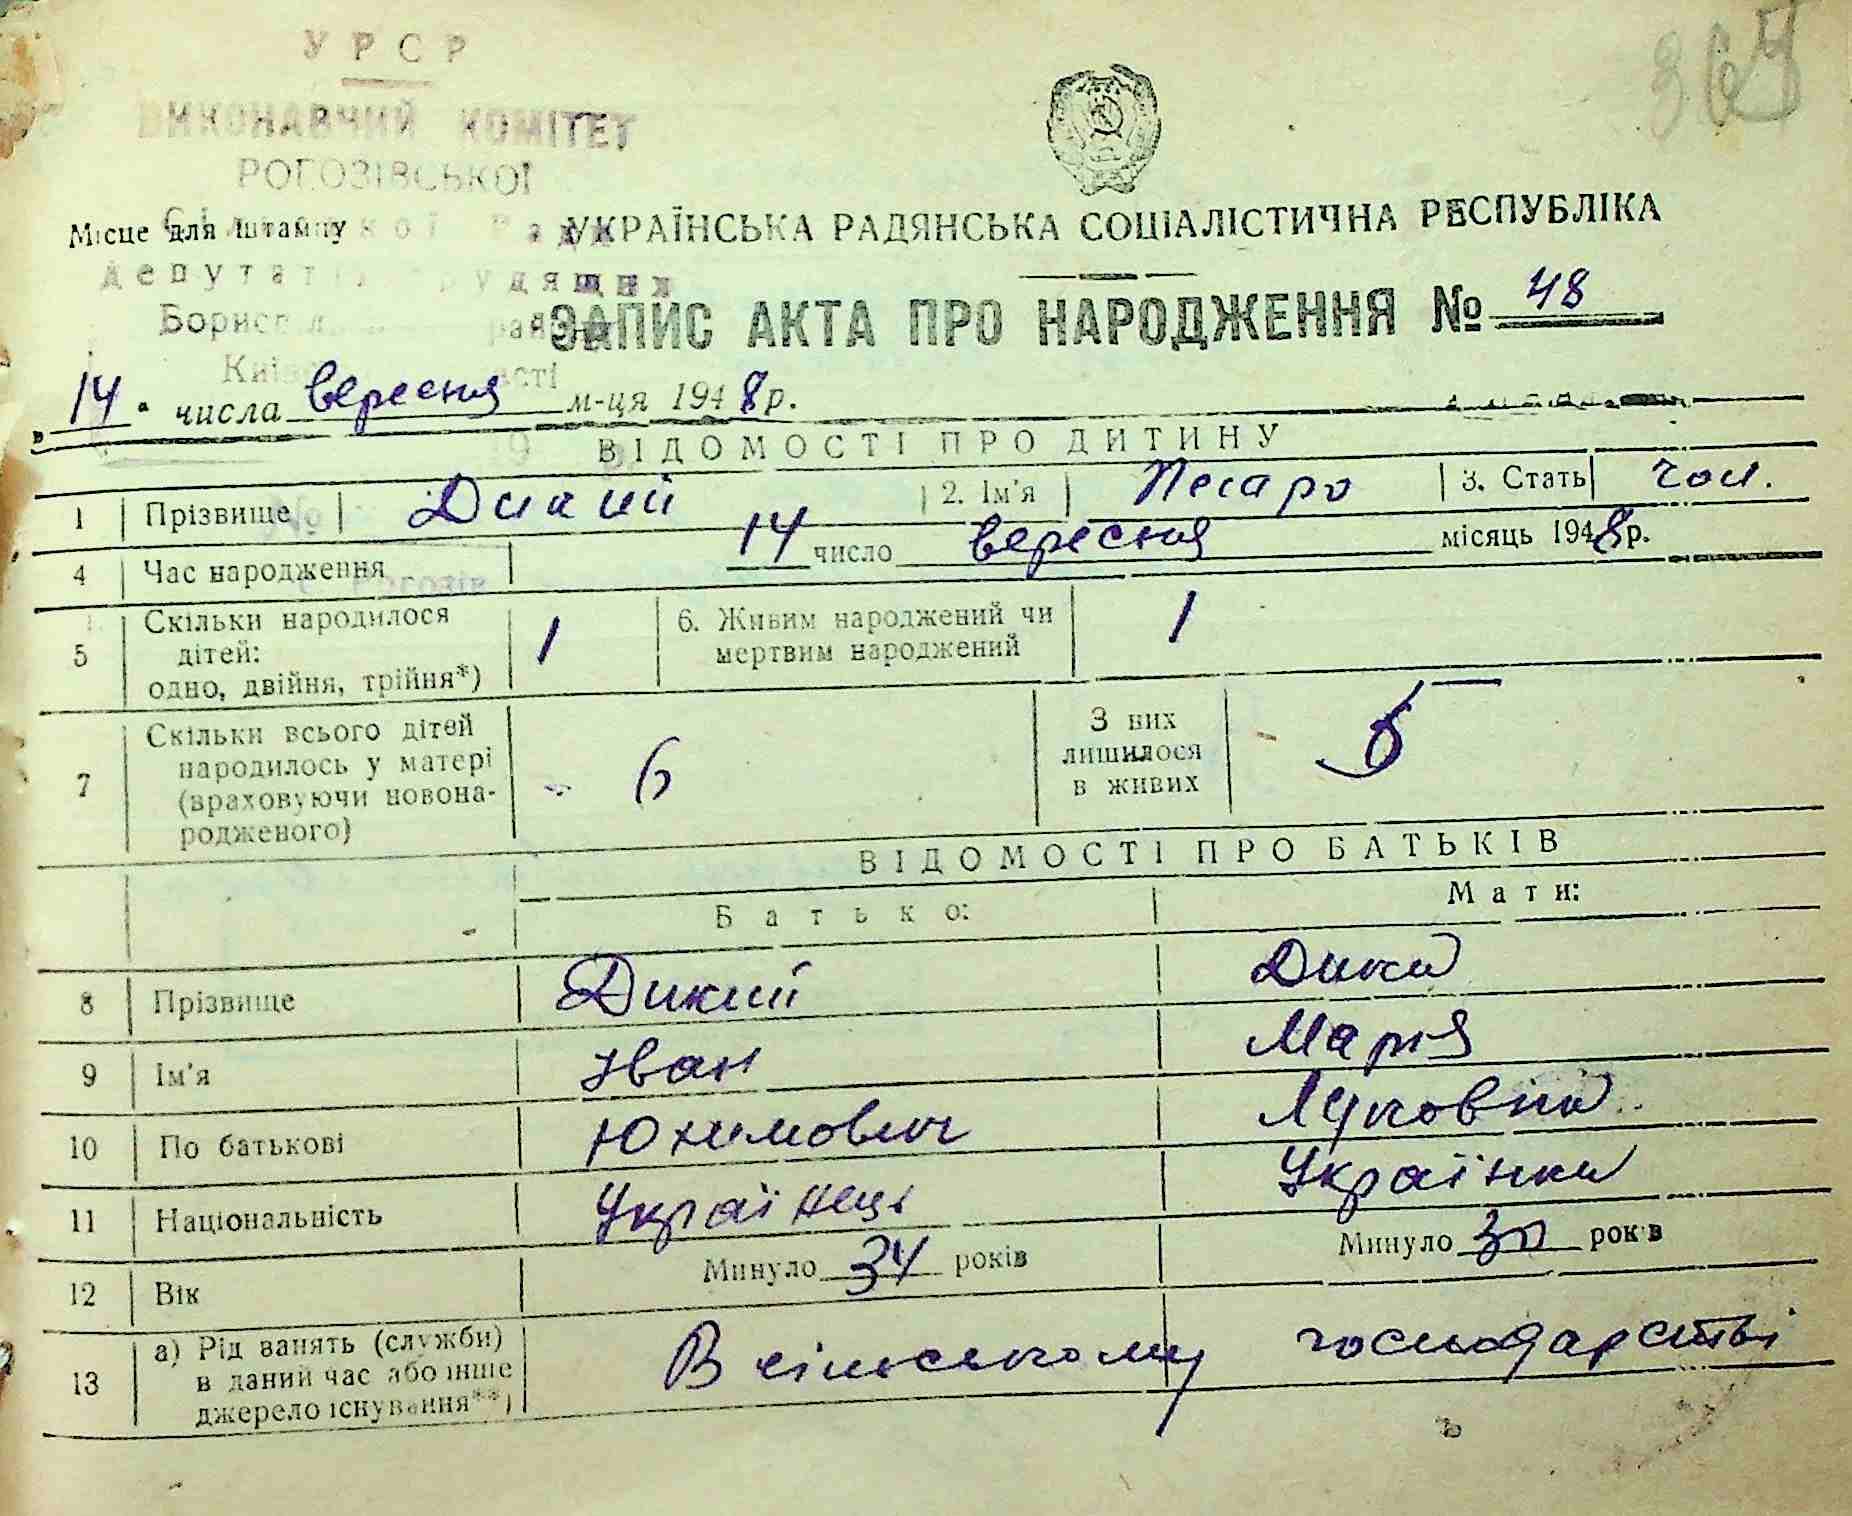 УРСР
ВИКОНАВЧИЙ КОМІТЕТ
РОГОЗІВСЬКОЇ
Місце для штампу
УКРАЇНСЬКА РАДЯНСЬКА СОЦІАЛІСТИЧНА РЕСПУБЛІКА
ЗАПИС АКТА ПРО НАРОДЖЕННЯ № 48
14 числа вересня м-ця 1948 р.
ВІДОМОСТІ ПРО ДИТИНУ
1 Прізвище Дикий 2. Ім'я 3. Стать чол.
4 Час народження 14 число вересня місяць 1948 р.
5 Скільки народилося дітей: одно, двійня, трійня*) 1 6. Живим народжений чи мертвим народжений 1
7 Скільки всього дітей народилось у матері (враховуючи новонародженого) - 6 З них лишилося в живих - 5
ВІДОМОСТІ ПРО БАТЬКІВ
Батько: Мати:
8 Прізвище Дикий Дика
9 Ім'я Іван Марія
10 По батькові Юхимович Луковна
11 Національність Українець Українка
12 Вік Минуло 34 років Минуло 30 років
13 а) Рід занять (служби) в даний час або інше джерело існування**) В сільському господарстві